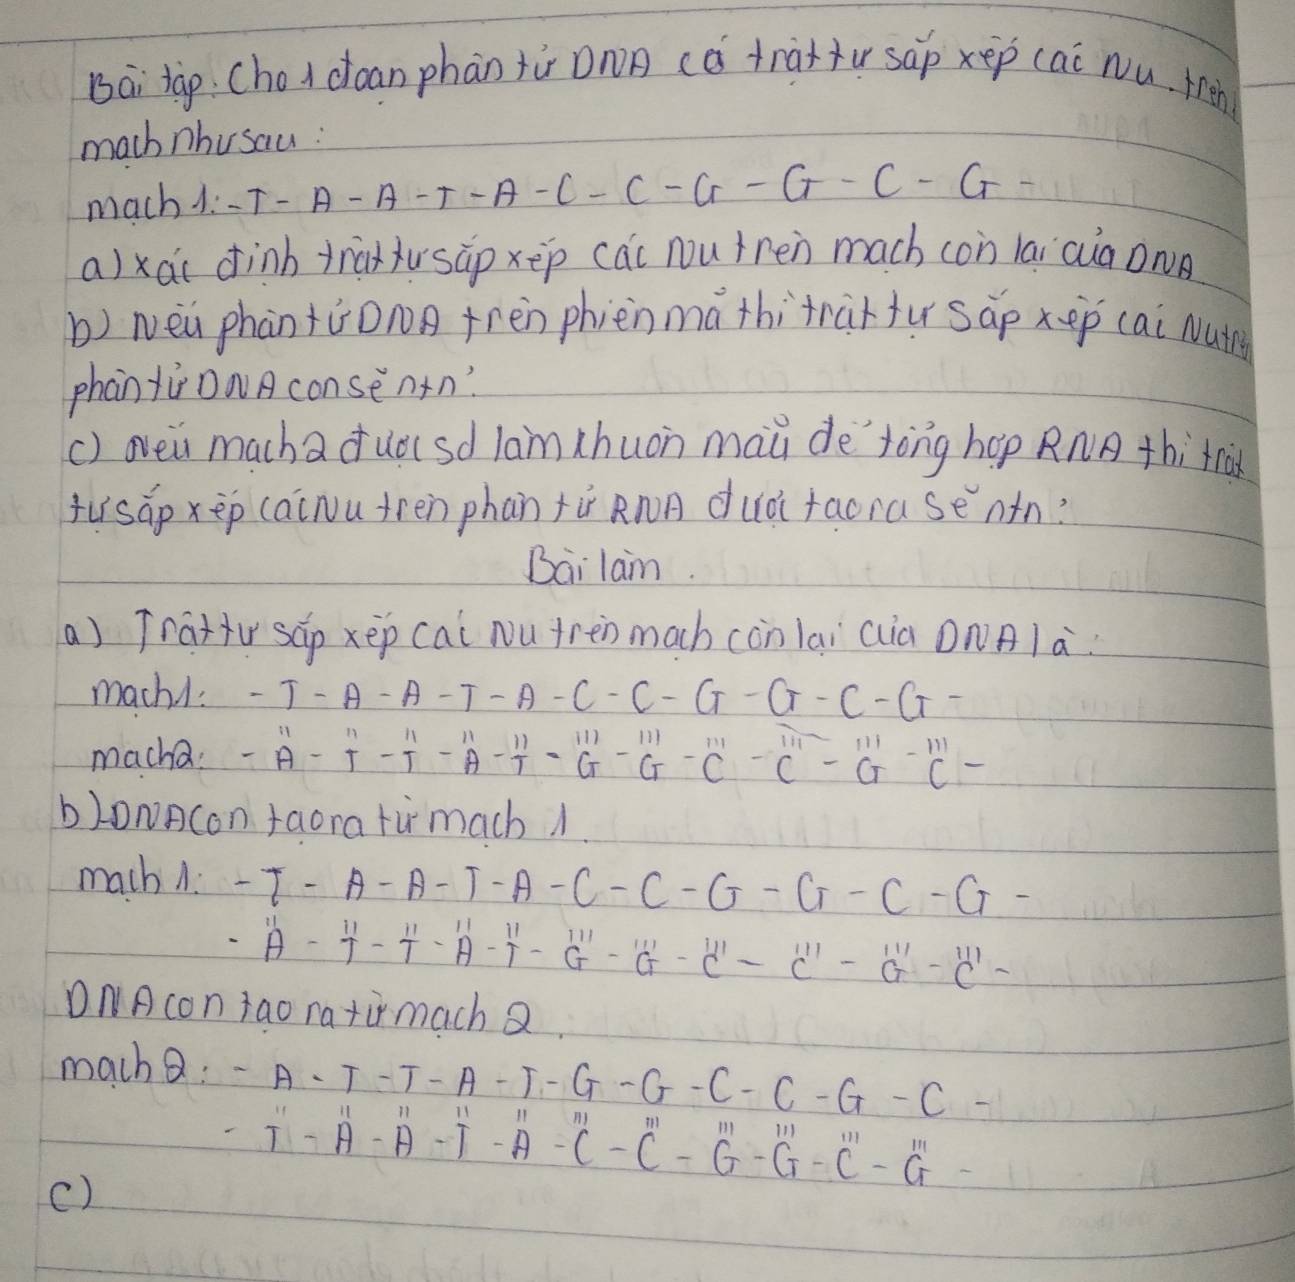 Bài tập: Cho 1 đoạn phân tử DNA có trật tự sắp xếp các Nu trên
mạch như sau:
mạch 1: - T - A - A - T - A - C - C - G - G - C - G -
a) xác định trật tự sắp xếp các Nu trên mạch còn lại của DNA
b) Nếu phân tử DNA trên phiên mã thì trật tự sắp xếp các Nu trên
phân tử DNA con sẽ ntn?
c) Nếu mạch 2 được sd làm khuôn mẫu để tổng hợp RNA thì trật
tự sắp xếp các Nu trên phân tử RNA được tạo ra sẽ ntn?
Bài làm.
a) Trật tự sắp xếp các Nu trên mạch còn lại của DNA là:
mạch 1: - T - A - A - T - A - C - C - G - G - C - G -
mạch 2: - A - T - T - A - T - G - G - C - C - G - C -
b) DNA con tạo ra từ mạch 1.
mạch 1: - T - A - A - T - A - C - C - G - G - C - G -
- A - T - T - A - T - G - G - C - C - G - C -
DNA con tạo ra từ mạch 2.
mạch 2: - A - T - T - A - T - G - G - C - C - G - C -
- T - A - A - T - A - C - C - G - G - C - G -
c)